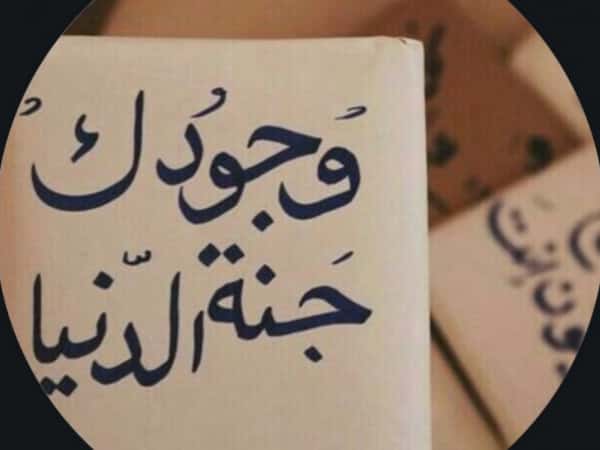 وُجُودُكُ
جَنة الدّنيا